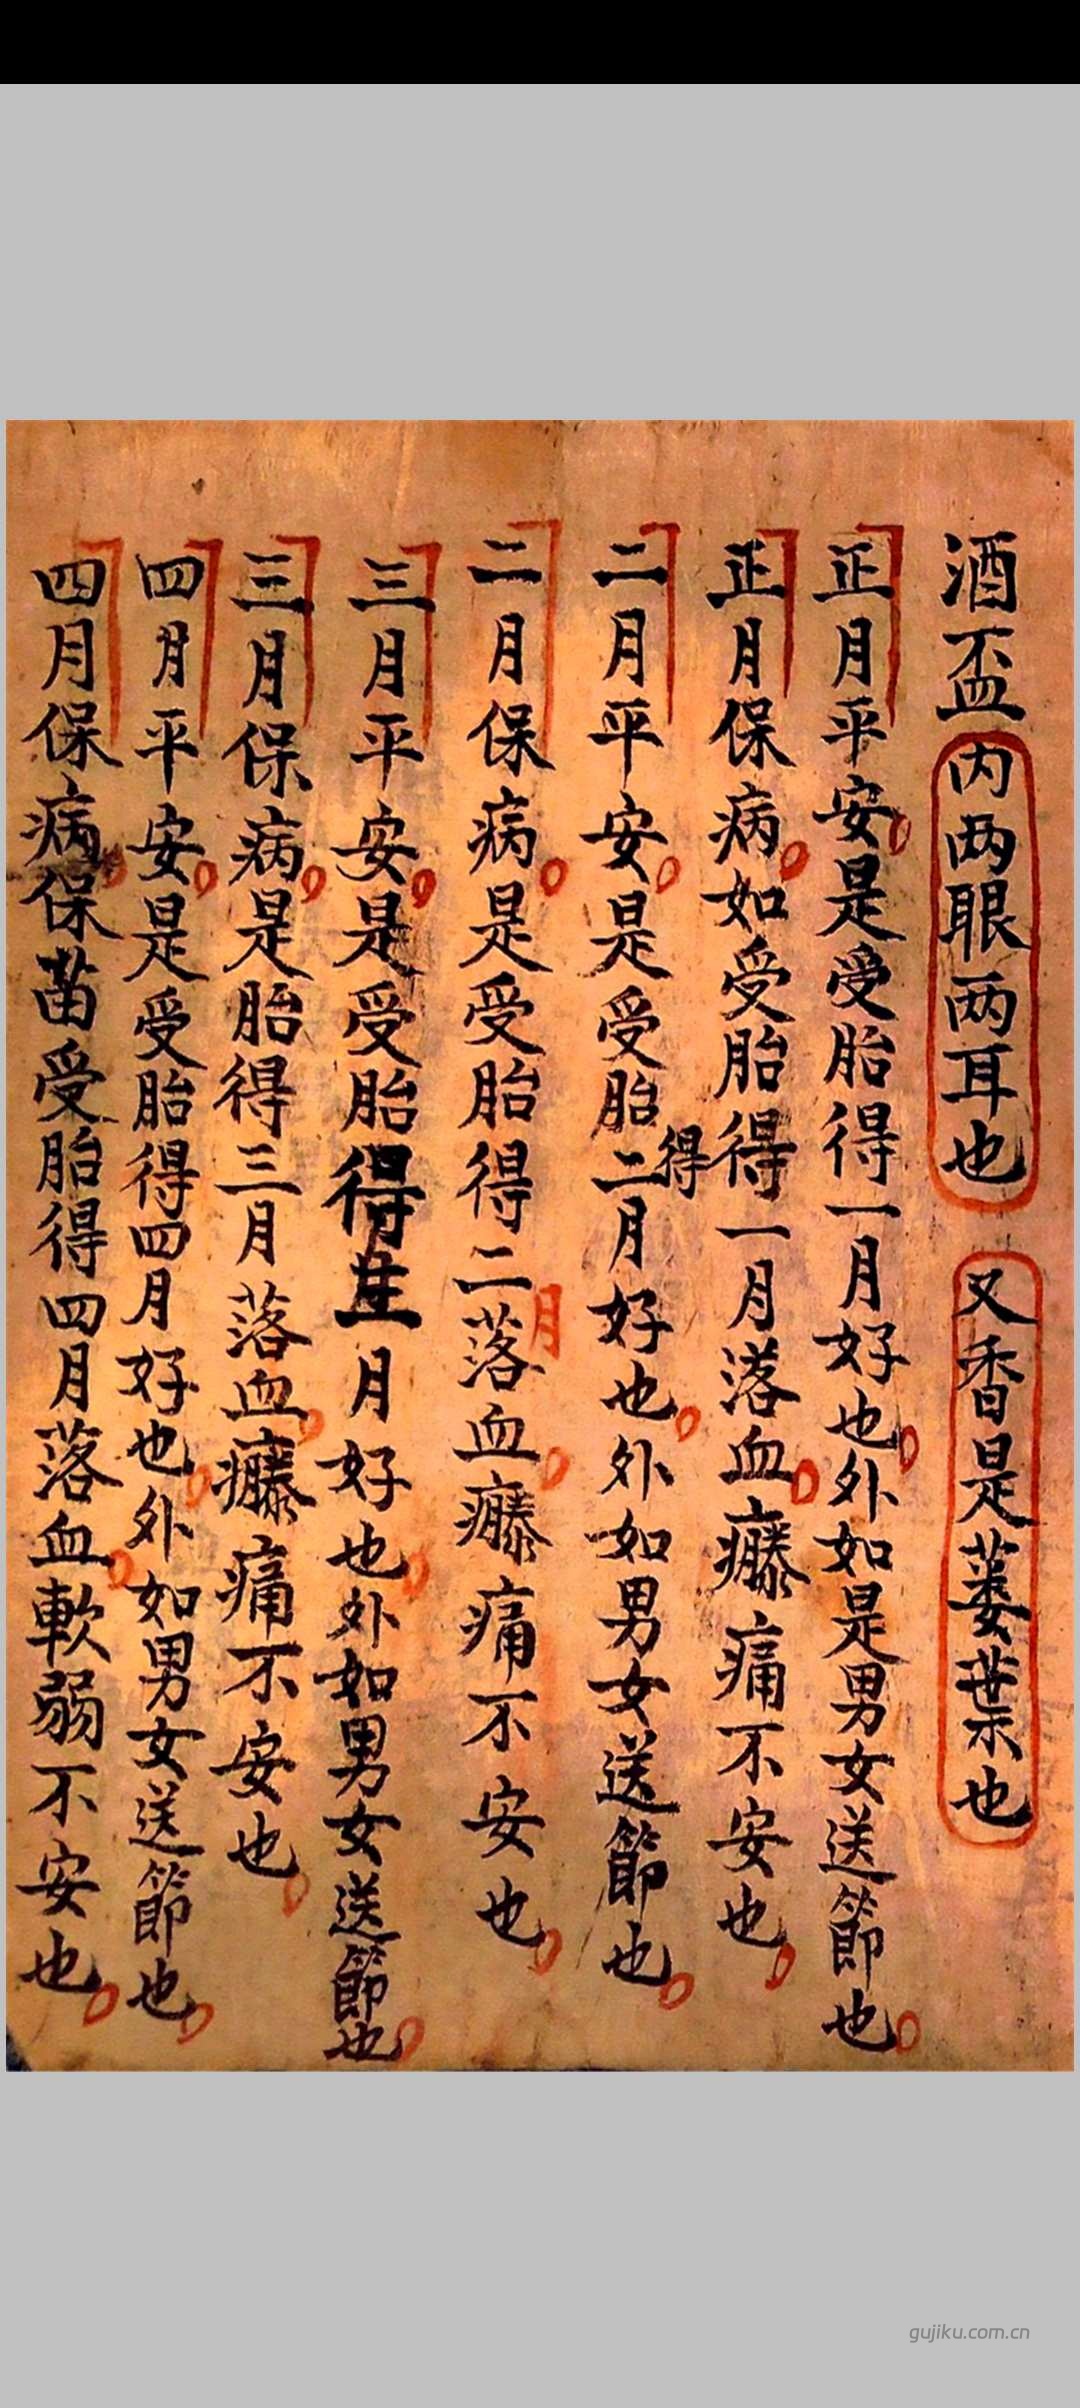 酒盃内两眼两耳也 又香是蒌葉也
正月平安是受胎得一月好也外如是男女送節也
正月保病如受胎得一月落血癳痛不安也
二月平安是受胎得二月好也外如男女送節也
二月保病是受胎得二月落血痛不安也
三月平安是受胎得三月好也外如男女送節也
三月保病是胎得三月落血痛不安也
四月平安是受胎得四月好也外如男女送節也
四月保病保苗受胎得四月落血軟弱不安也
gujiku.com.cn